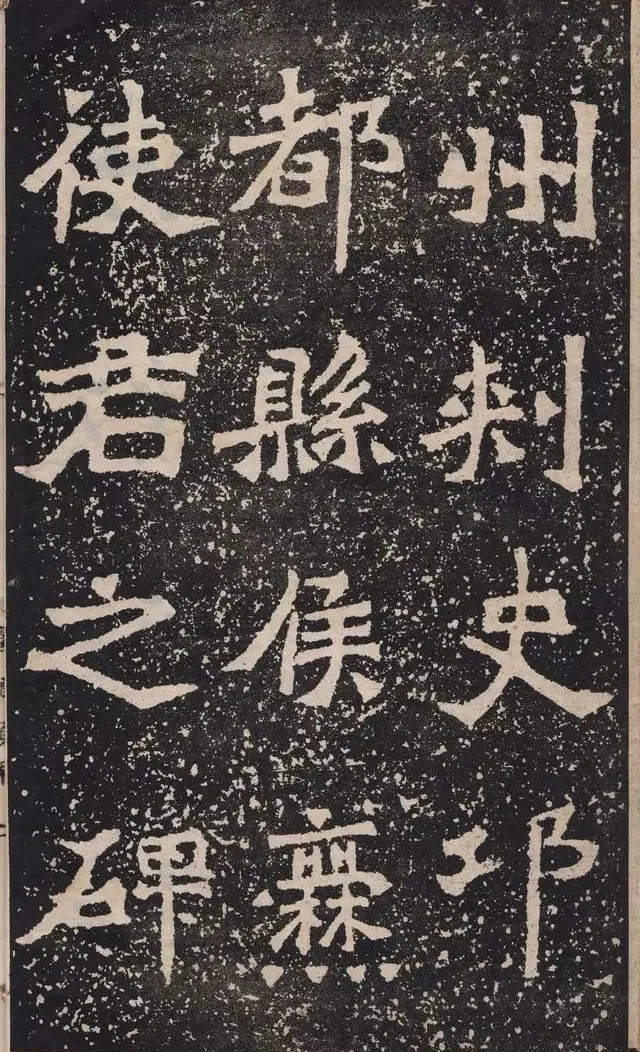 州刺史邛
都縣侯爨
使君之碑